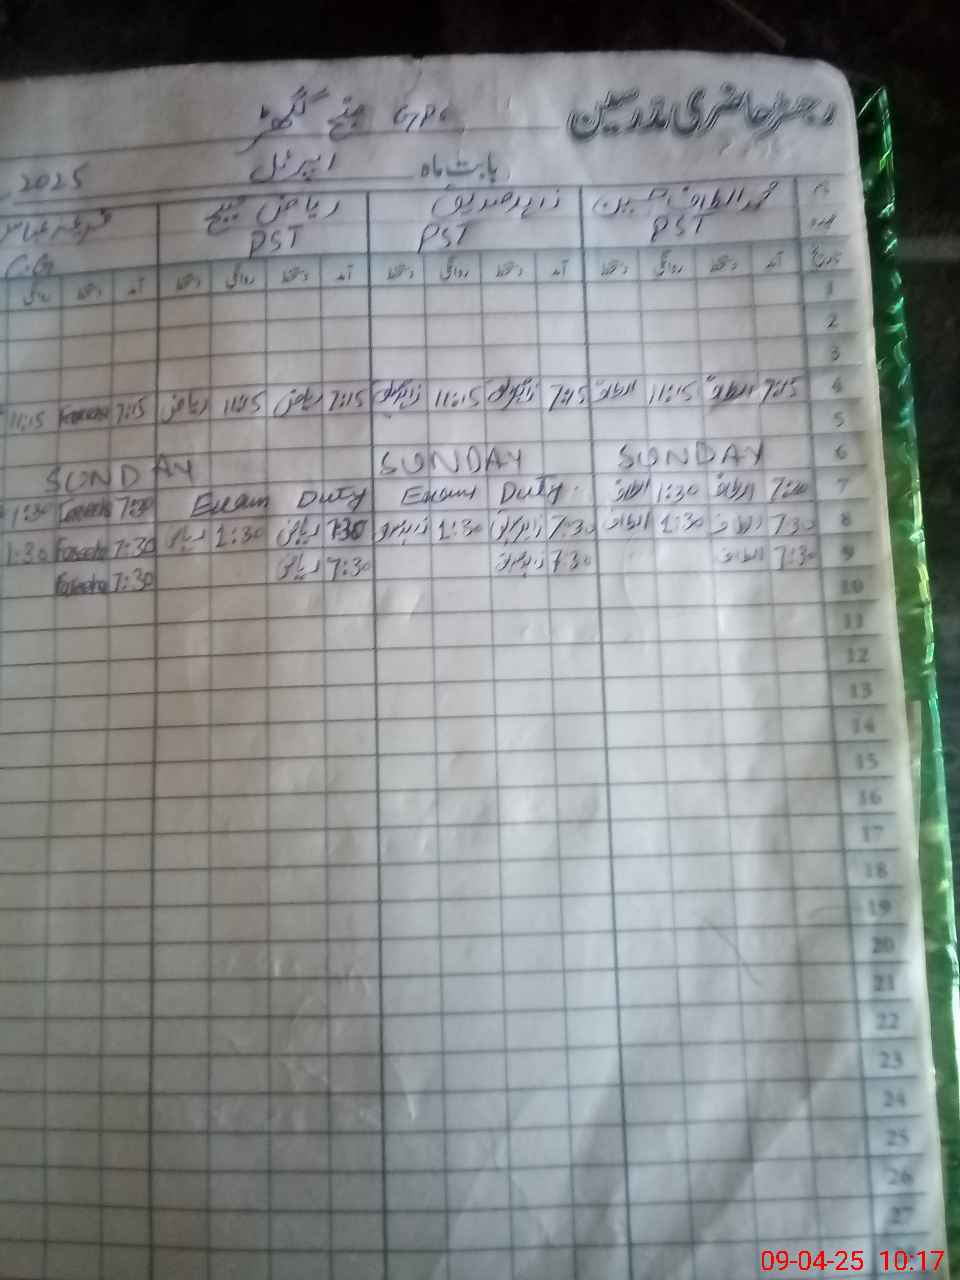 رجسٹر حاضری مدرسین
GPS گھڑ
بابت ماہ اپریل 2025
نام
محمد الطاف حسین زبیر صدیق ریاض
عہدہ
PST PST PST C.G
تاریخ آمد دستخط روانگی دستخط آمد دستخط روانگی دستخط آمد دستخط روانگی دستخط آمد دستخط روانگی
1
2
3
4 7:15 الطاف 11:15 الطاف 7:15 زبیر 11:15 زبیر 7:15 ریاض 11:15 ریاض 7:15 Faseeha 11:15
5
6 SUNDAY SUNDAY SUNDAY
7 7:30 الطاف 1:30 الطاف Exam Duty Exam Duty 7:30 Faseeha 1:30
8 7:30 الطاف 1:30 الطاف 7:30 زبیر 1:30 زبیر 7:30 ریاض 1:30 ریاض 7:30 Faseeha 1:30
9 7:30 الطاف 7:30 زبیر 7:30 ریاض 7:30 Faseeha
10
11
12
13
14
15
16
17
18
19
20
21
22
23
24
25
26
27
09-04-25 10:17